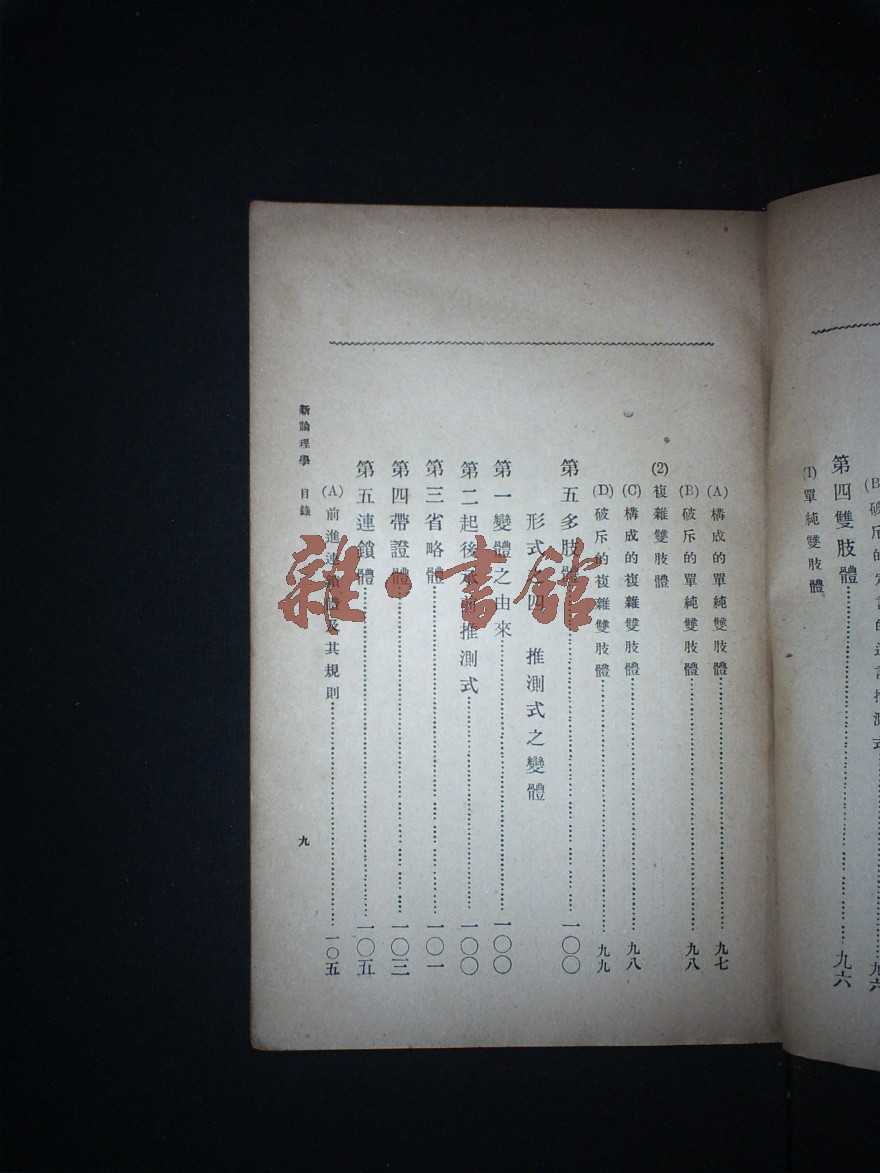 第四雙肢體……九六
(1)單純雙肢體
(A)構成的單純雙肢體……九七
(B)破斥的單純雙肢體……九八
(2)複雜雙肢體
(C)構成的複雜雙肢體……九八
(D)破斥的複雜雙肢體……九九
第五多肢體……一〇〇
形式之四 推測式之變體
第一變體之由來……一〇〇
第二起後承前推測式……一〇〇
第三省略體……一〇一
第四帶證體……一〇三
第五連鎖體……一〇五
(A)前進連鎖體及其規則……一〇五
新論理學 目錄 九
雜·書館